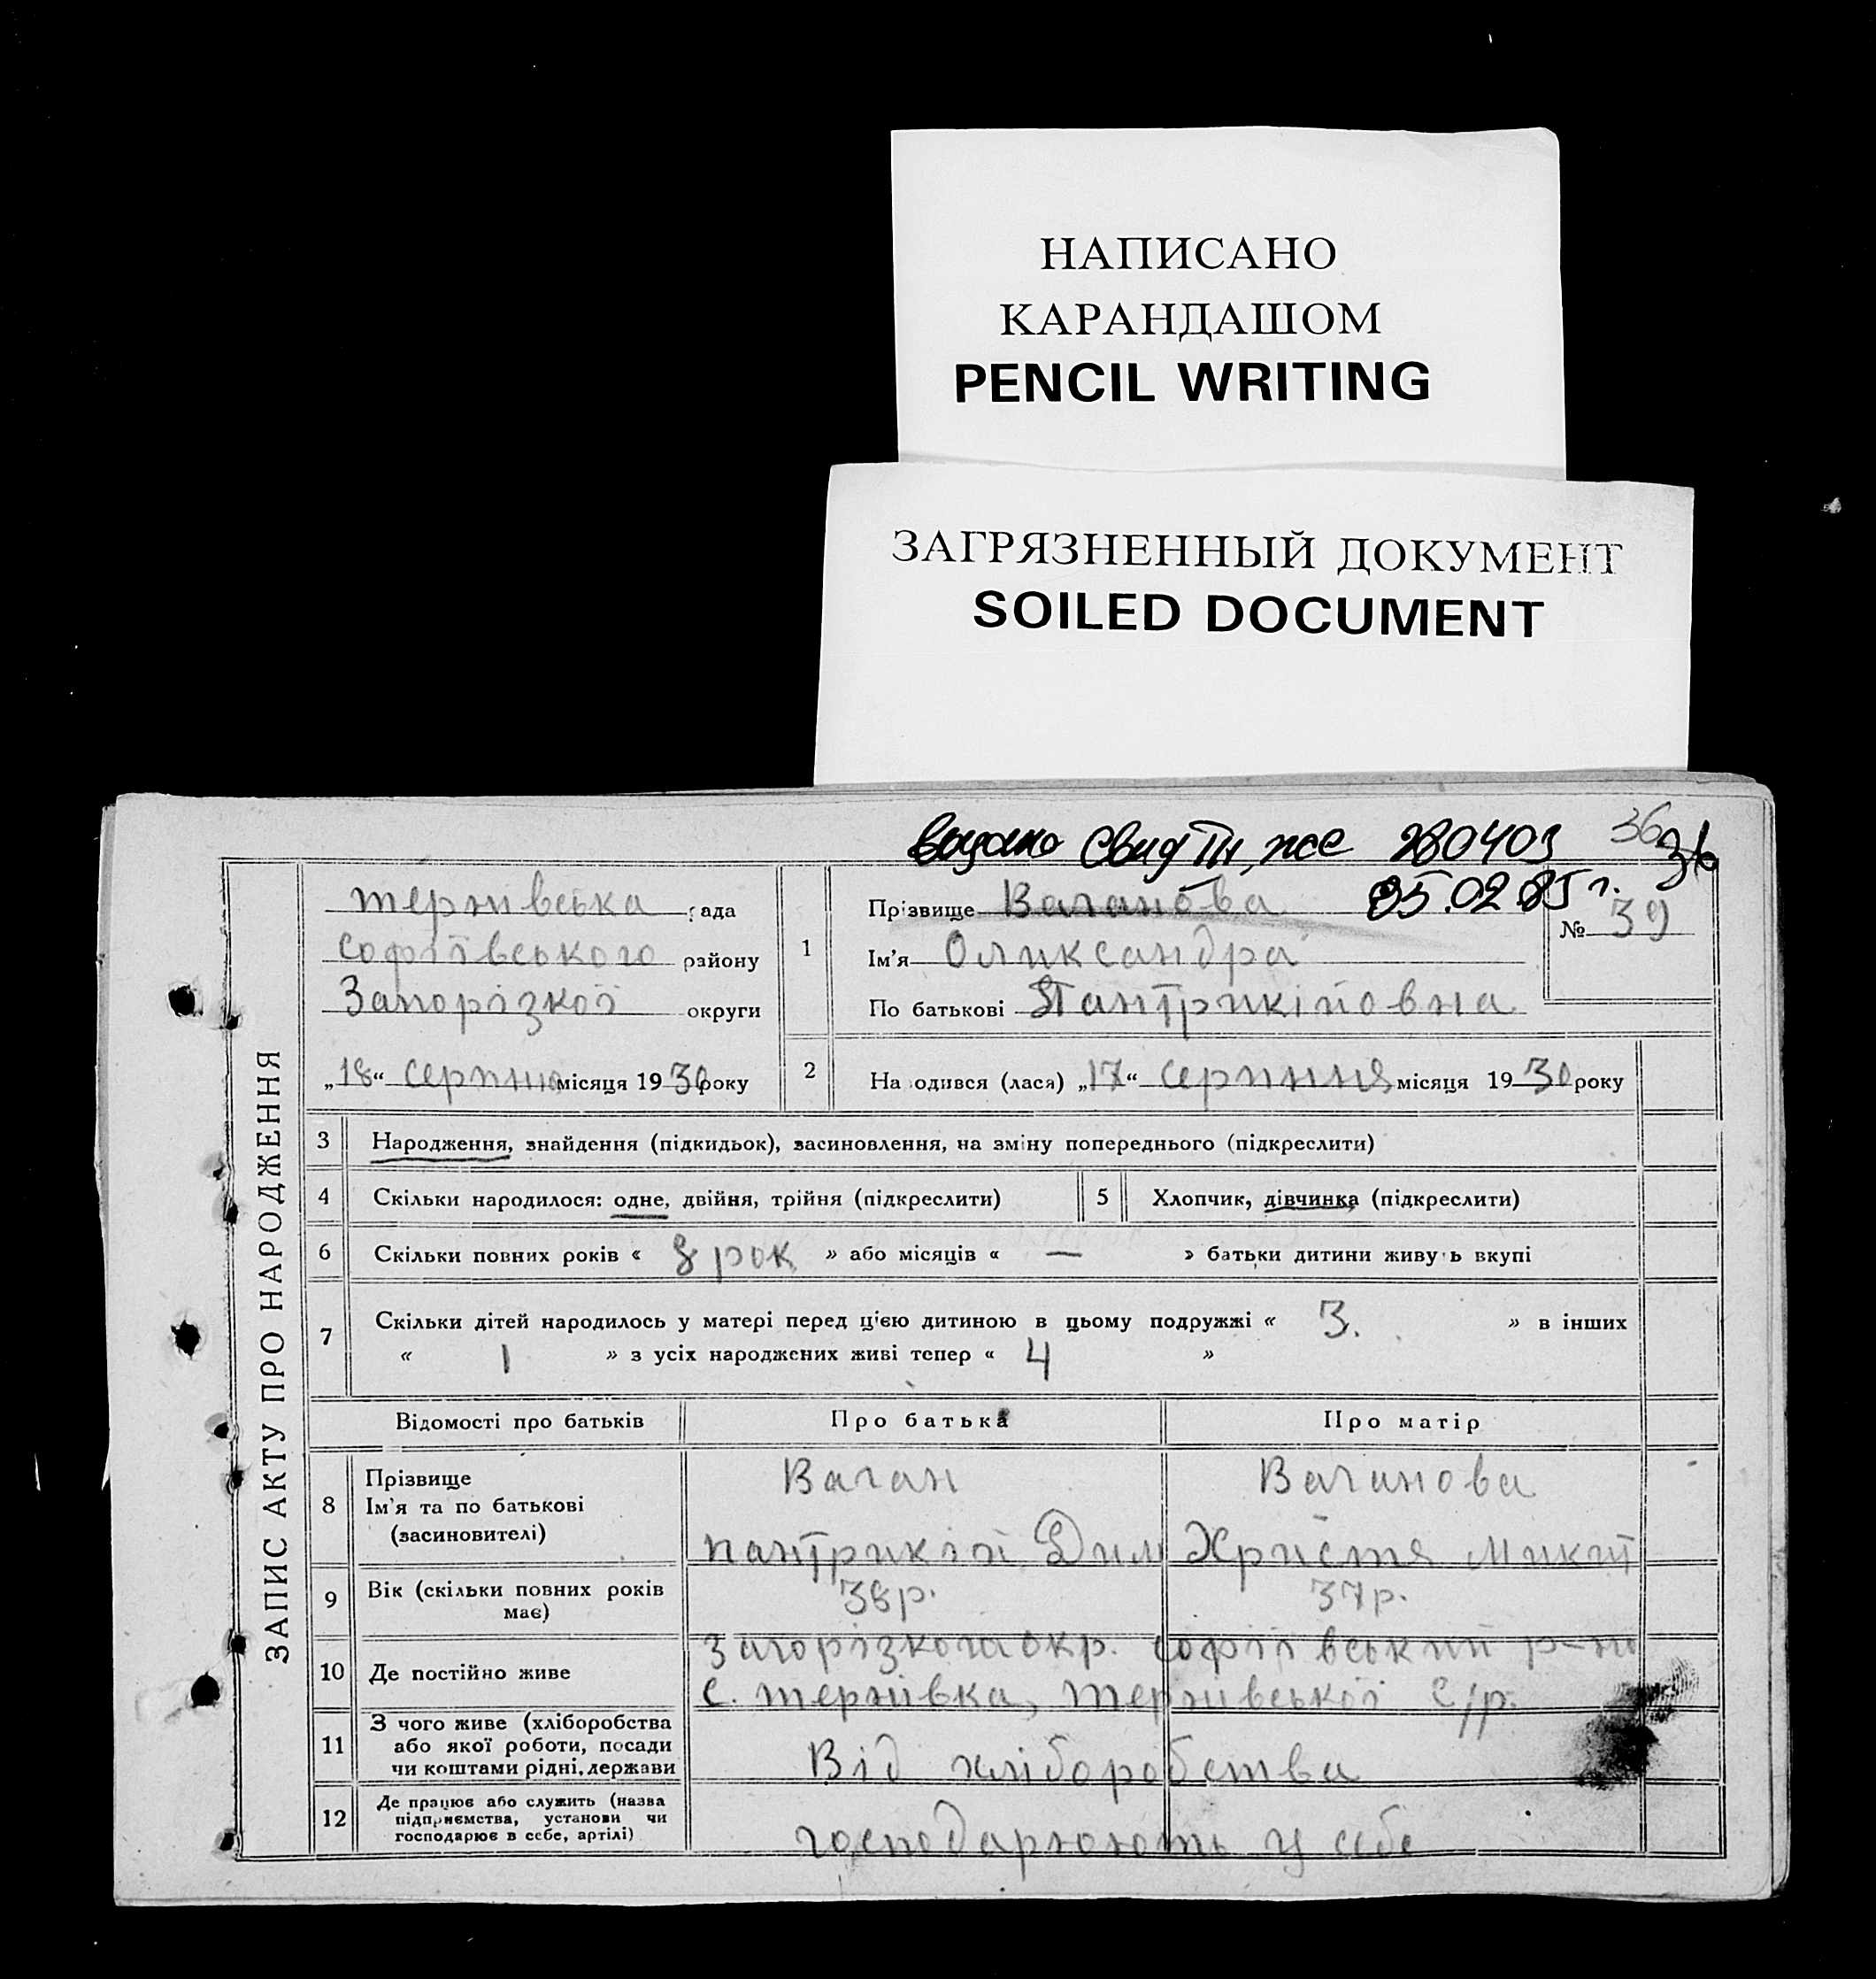 НАПИСАНО
КАРАНДАШОМ
PENCIL WRITING
ЗАГРЯЗНЕННЫЙ ДОКУМЕНТ
SOILED DOCUMENT
выдано Свид 280403 36 36
05.02.85 г.
ЗАПИС АКТУ ПРО НАРОДЖЕННЯ
тернівська рада
софіївського району
Запорізкої округи
„18“ серпню місяця 1930 року
1
Прізвище Ваганова
№ 39
Ім'я Олександра
По батькові Пантрикійовна
2 На одився (лася) „17“ серпння місяця 1930 року
3 Народження, знайдення (підкидьок), засиновлення, на зміну попереднього (підкреслити)
4 Скільки народилося: одне, двійня, трійня (підкреслити) 5 Хлопчик, дівчинка (підкреслити)
6 Скільки повних років « 8 рок » або місяців « — » батьки дитини живу ь вкупі
7 Скільки дітей народилось у матері перед цією дитиною в цьому подружжі « 3. » в інших
« 1 » з усіх народжених живі тепер « 4 »
Відомості про батьків Про батька Про матір
8 Прізвище Ваган Ваганова
Ім'я та по батькові
(засиновителі) пантрикій Дим Христя Микит
9 Вік (скільки повних років має) 38р. 37р.
10 Де постійно живе Запорізкога окр. Софіївський р-но
с. тернівка, тернівської с/р.
11 З чого живе (хліборобства
або якої роботи, посади
чи коштами рідні, держави Від хліборобства
12 Де працює або служить (назва
підприємства, установи чи
господарює в себе, артілі) господарюють у себе